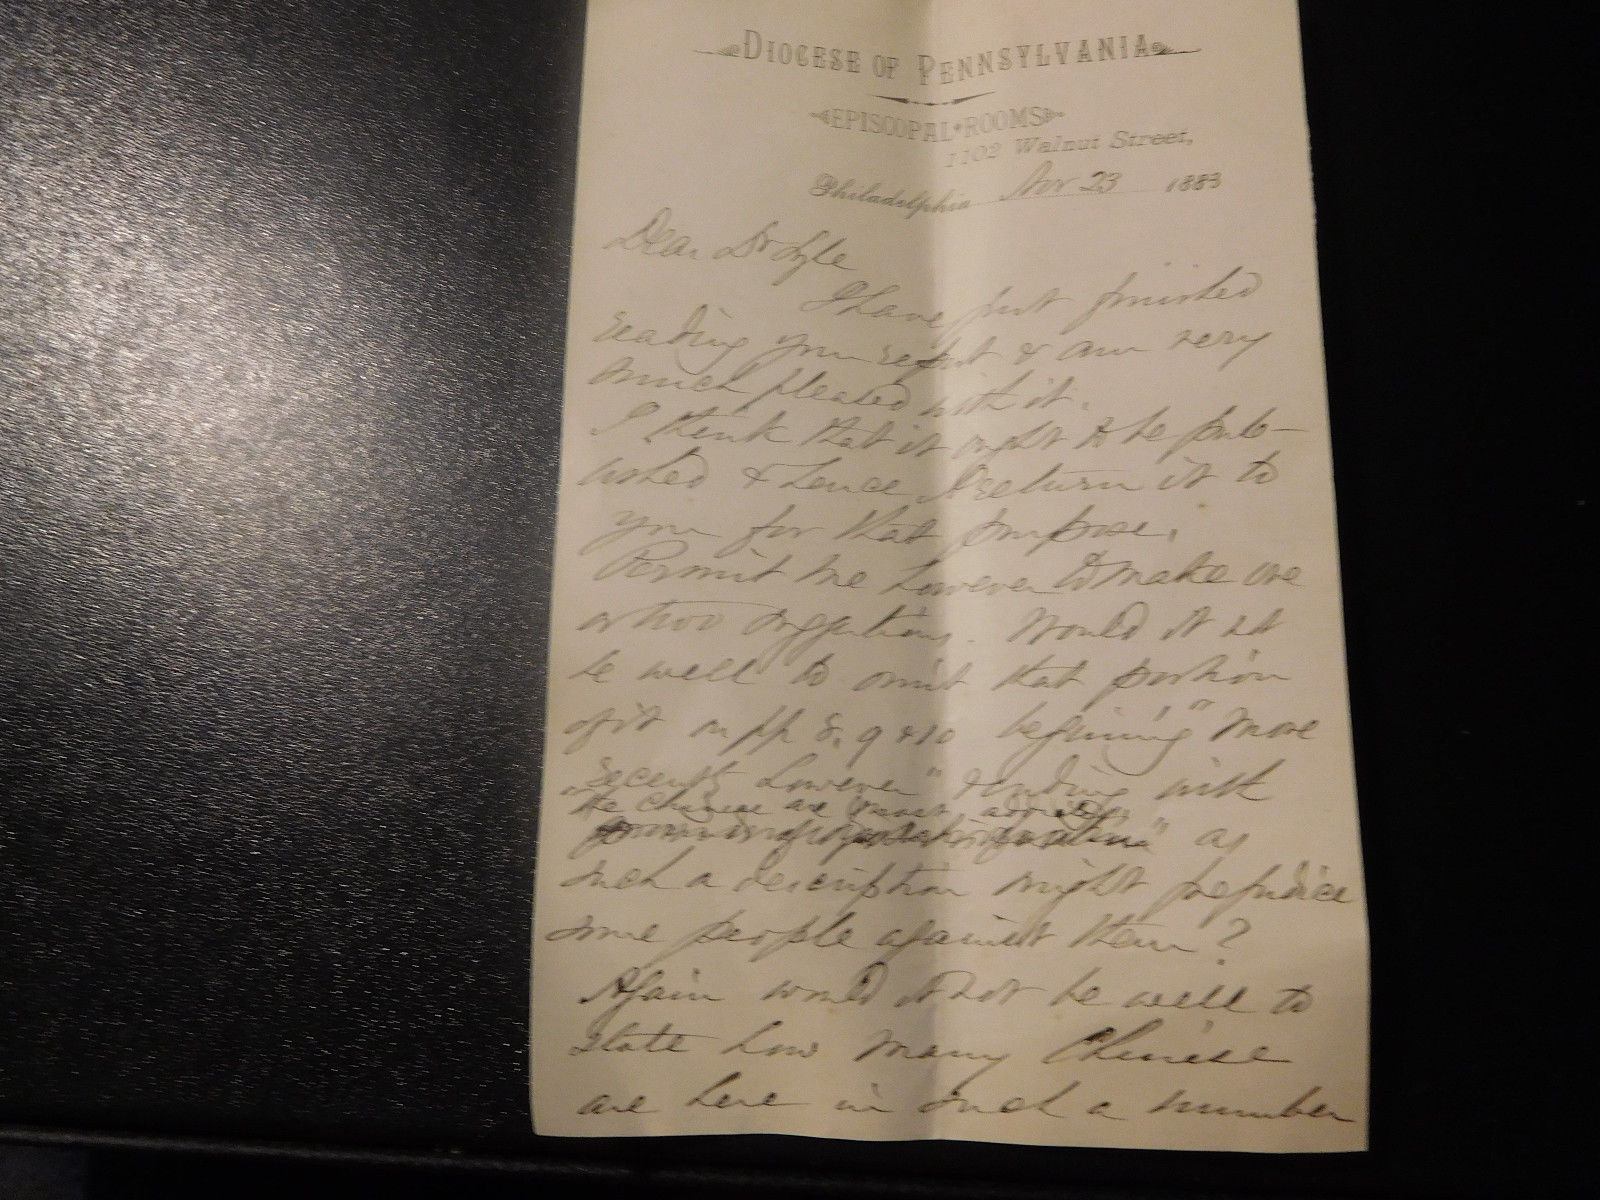 DIOCESE OF PENNSYLVANIA
EPISCOPAL ROOMS
1102 Walnut Street,
Philadelphia Nov 23 1883
Dear Dr Lyle
I have just finished
reading your report & am very
much pleased with it.
I think that it ought to be pub-
lished & hence I return it to
you for that purpose.
Permit me however to make one
or two suggestions. Would it not
be well to omit that portion
of it on pp 8, 9 & 10 beginning "More
recently however" & ending with
"the Chinese are most
as
such a description might prejudice
some people against them?
Again would it not be well to
state how many Chinese
are here in such a number